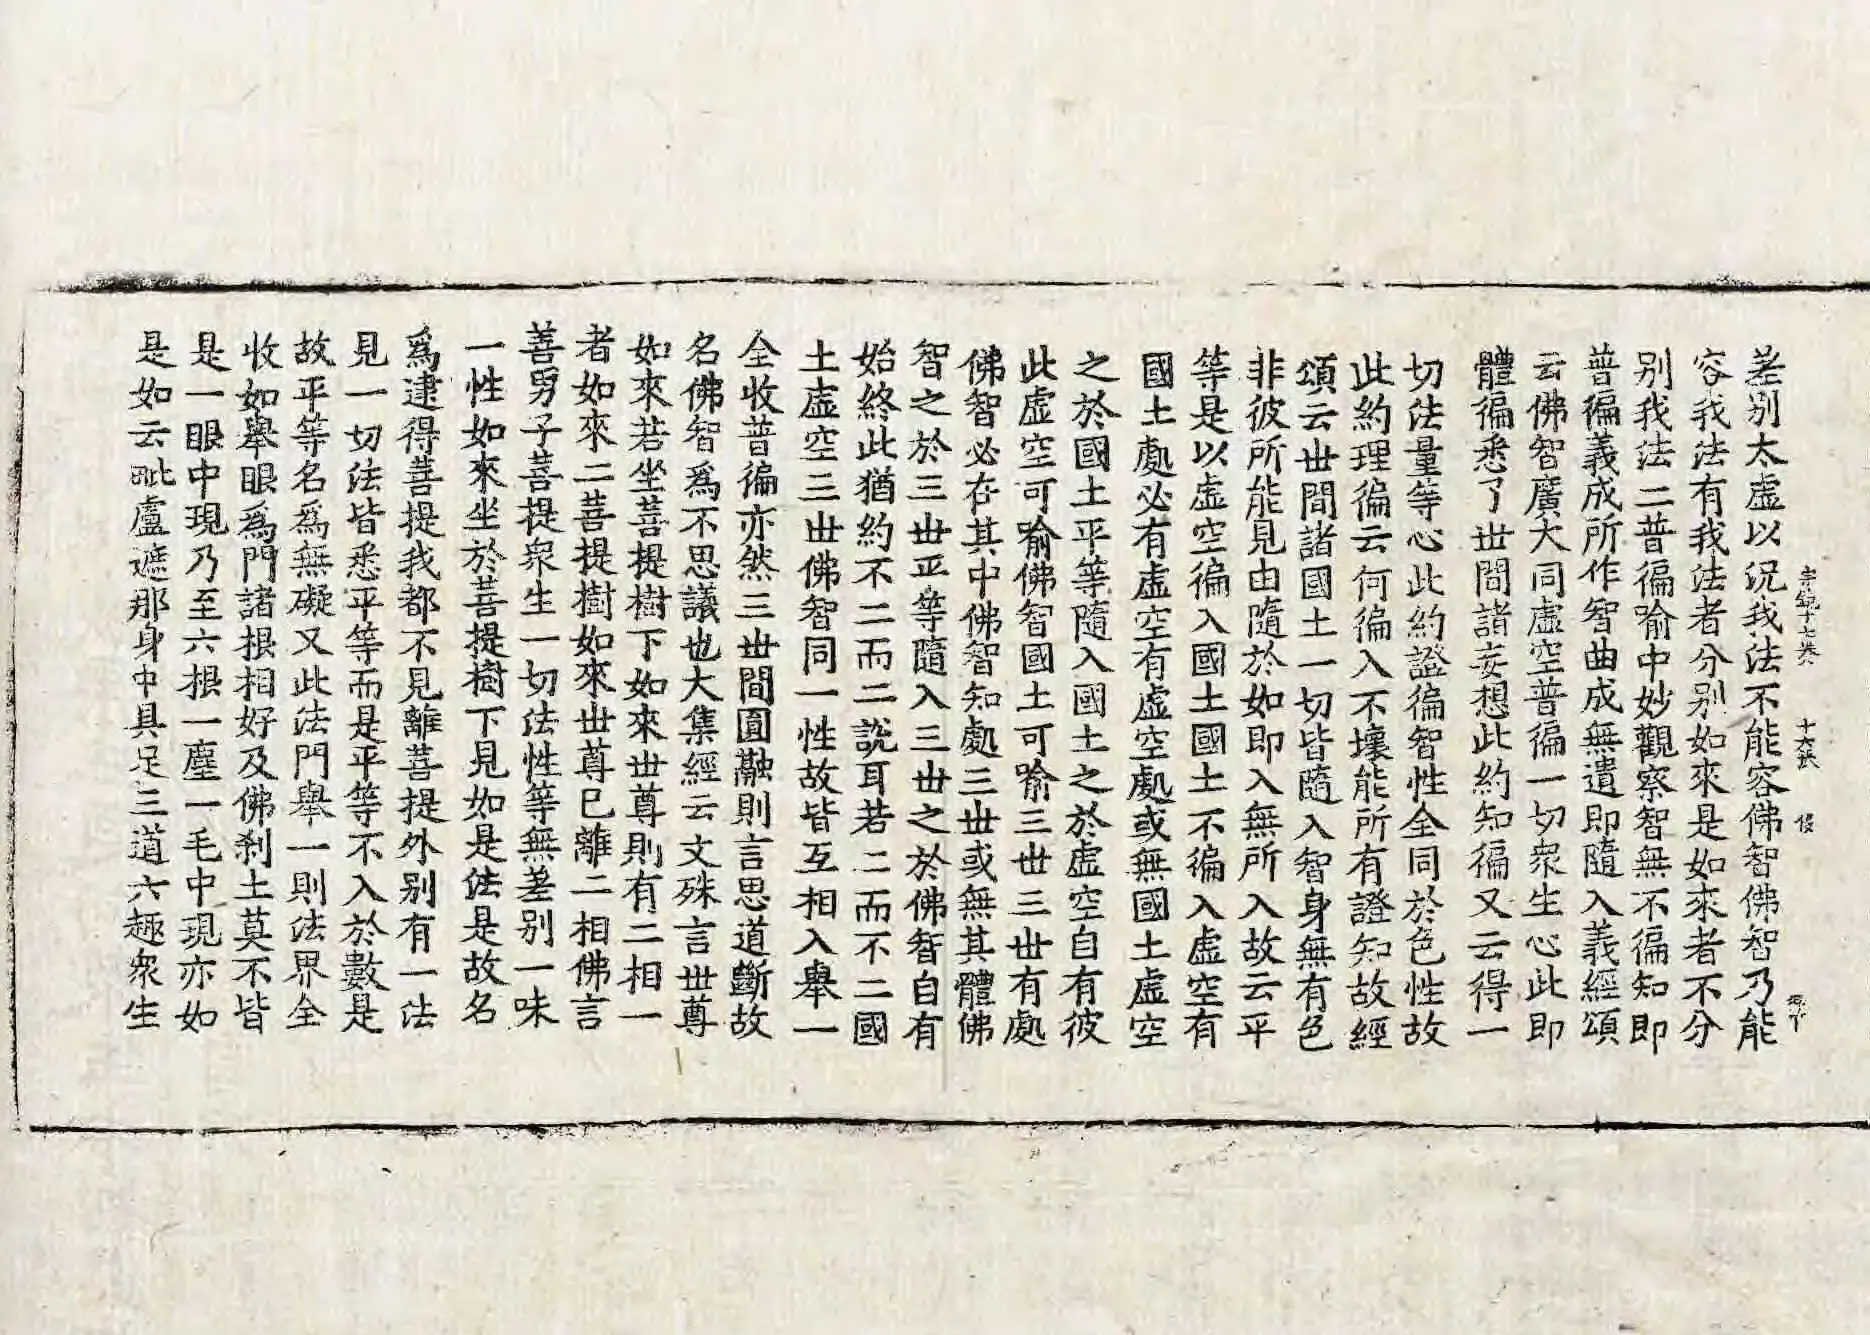 差別太虛以況我法不能容佛智佛智乃能
容我法有我法者分別如來是如來者不分
別我法二普徧喻中妙觀察智無不徧知即
普徧義成所作智曲成無遺即隨入義經頌
云佛智廣大同虛空普徧一切衆生心此即
體徧悉了世間諸妄想此約知徧又云得一
切法量等心此約證徧智性全同於色性故
此約理徧云何徧入不壞能所有證知故經
頌云世間諸國土一切皆隨入智身無有色
非彼所能見由隨於如即入無所入故云平
等是以虛空徧入國土國土不徧入虛空有
國土處必有虛空有虛空處或無國土虛空
之於國土平等隨入國土之於虛空自有彼
此虛空可喻佛智國土可喻三世三世有處
佛智必在其中佛智知處三世或無其體佛
智之於三世平等隨入三世之於佛智自有
始終此猶約不二而二說耳若二而不二國
土虛空三世佛智同一性故皆互相入舉一
全收普徧亦然三世間圓融則言思道斷故
名佛智爲不思議也大集經云文殊言世尊
如來若坐菩提樹下如來世尊則有二相一
者如來二菩提樹如來世尊已離二相佛言
善男子菩提衆生一切法性等無差別一味
一性如來坐於菩提樹下見如是法是故名
爲逮得菩提我都不見離菩提外別有一法
見一切法皆悉平等而是平等不入於數是
故平等名爲無礙又此法門舉一則法界全
收如舉眼爲門諸根相好及佛剎土莫不皆
是一眼中現乃至六根一塵一毛中現亦如
是如云毗盧遮那身中具足三道六趣衆生